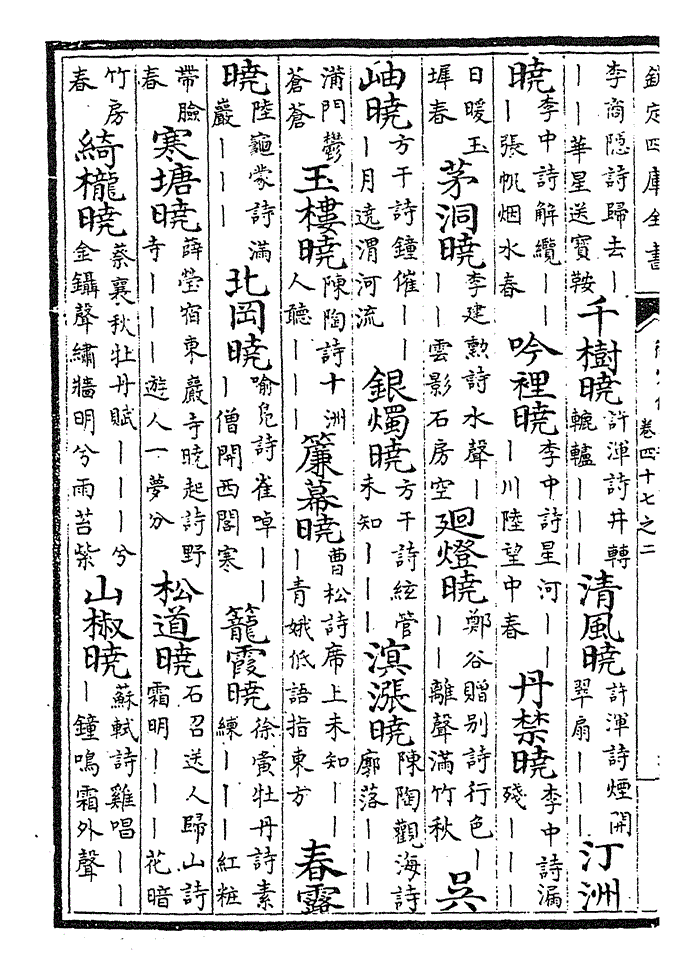 欽定四庫全書 卷四十七之二
李商隱詩歸去丨丨丨華星送寶鞍 千樹曉 許渾詩井轉轆轤丨丨丨 清風曉 許渾詩煙開翠扇丨丨丨 汀洲
曉 李中詩解纜丨丨丨張帆烟水春 吟裡曉 李中詩星河丨丨丨川陸望中春 丹禁曉 李中詩漏殘丨丨丨
日暖玉墀春 茅洞曉 李建勲詩水聲丨丨丨雲影石房空 廻燈曉 鄭谷贈别詩行色丨丨丨離聲滿竹秋 吳
岫曉 方干詩鐘催丨丨丨月遶渭河流 銀燭曉 方干詩絃管未知丨丨丨 溟漲曉 陳陶觀海詩廓落丨丨丨
蒲門鬱蒼蒼 玉樓曉 陳陶詩十洲人聽丨丨丨 簾幕曉 曹松詩席上未知丨丨丨青娥低語指東方 春露
曉 陸龜蒙詩滿巖丨丨丨 北岡曉 喻鳬詩雀啅丨丨丨僧開西閣寒 籠霞曉 徐夤牡丹詩素練丨丨丨紅粧
帶臉春 寒塘曉 薛瑩宿東巖寺曉起詩野寺丨丨丨遊人一夢分 松道曉 石召送人歸山詩霜明丨丨丨花暗
竹房春 綺櫳曉 蔡襄秋牡丹賦丨丨丨兮金鑷聲繡牆明兮雨苔紫 山椒曉 蘇軾詩雞唱丨丨丨鐘鳴霜外聲